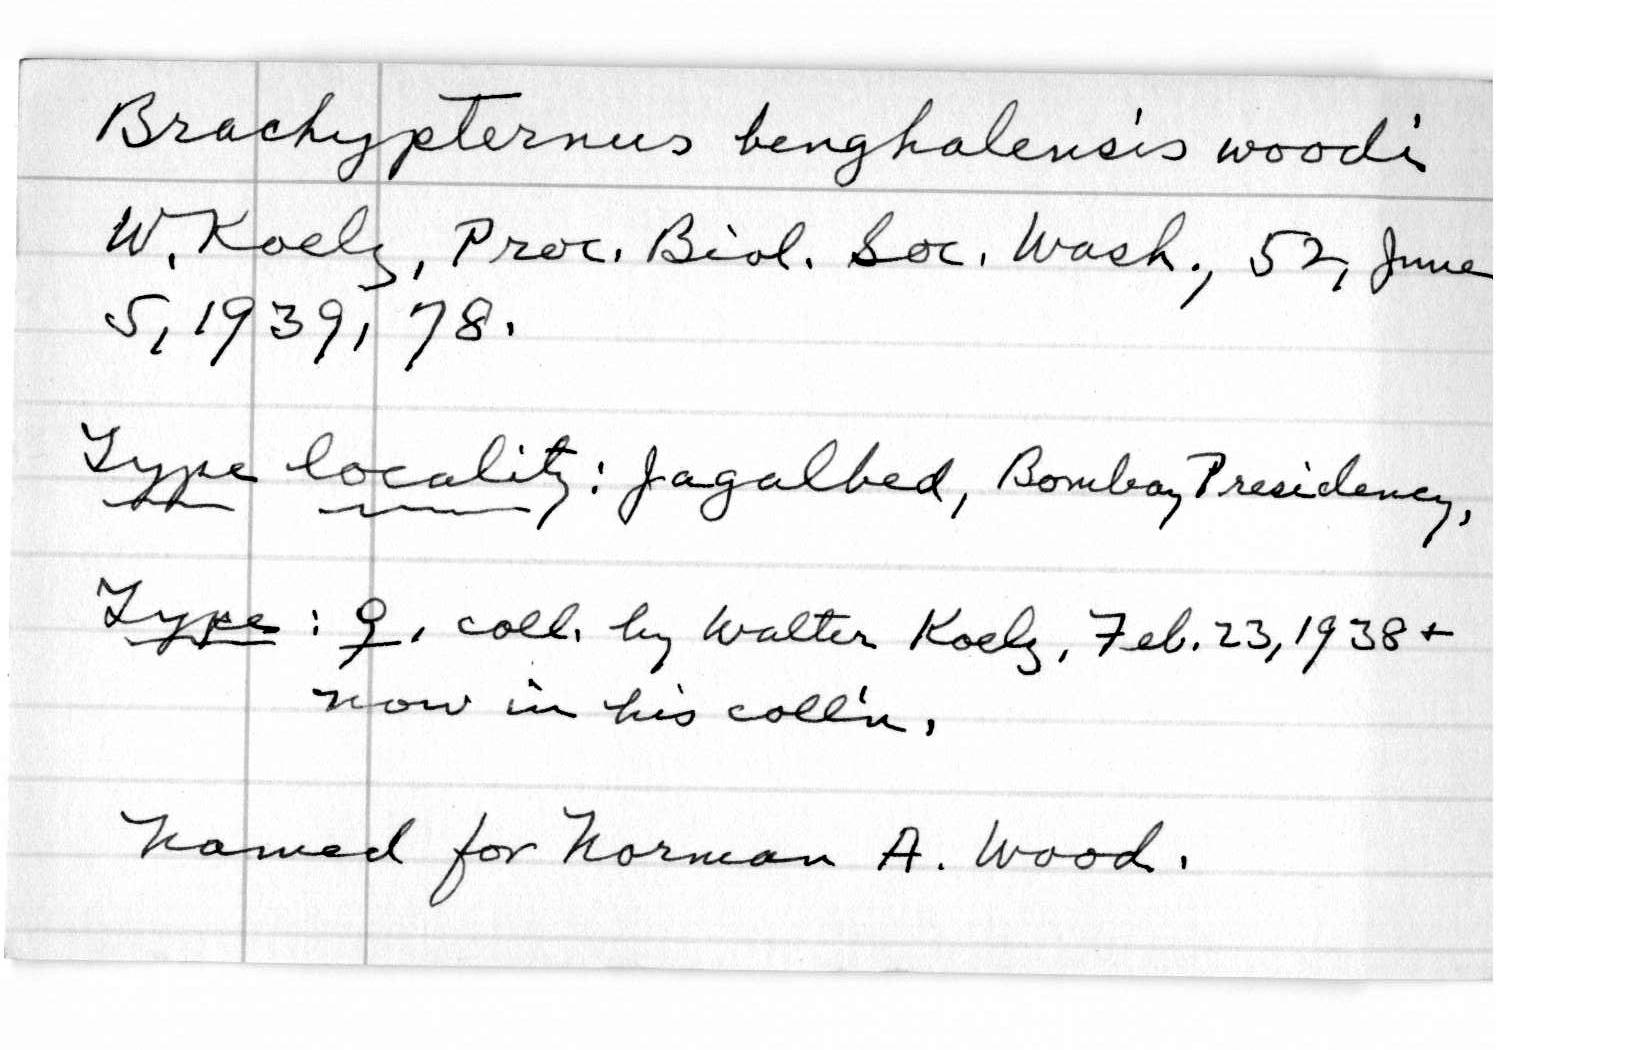 Brachypternus benghalensis woodi
W. Koelz, Proc. Biol. Soc. Wash., 52, June
5, 1939, 78.
Type locality: Jagalbed, Bombay Presidency,
Type: ♀, coll. by Walter Koelz, Feb. 23, 1938 +
now in his coll'n.
Named for Norman A. Wood.